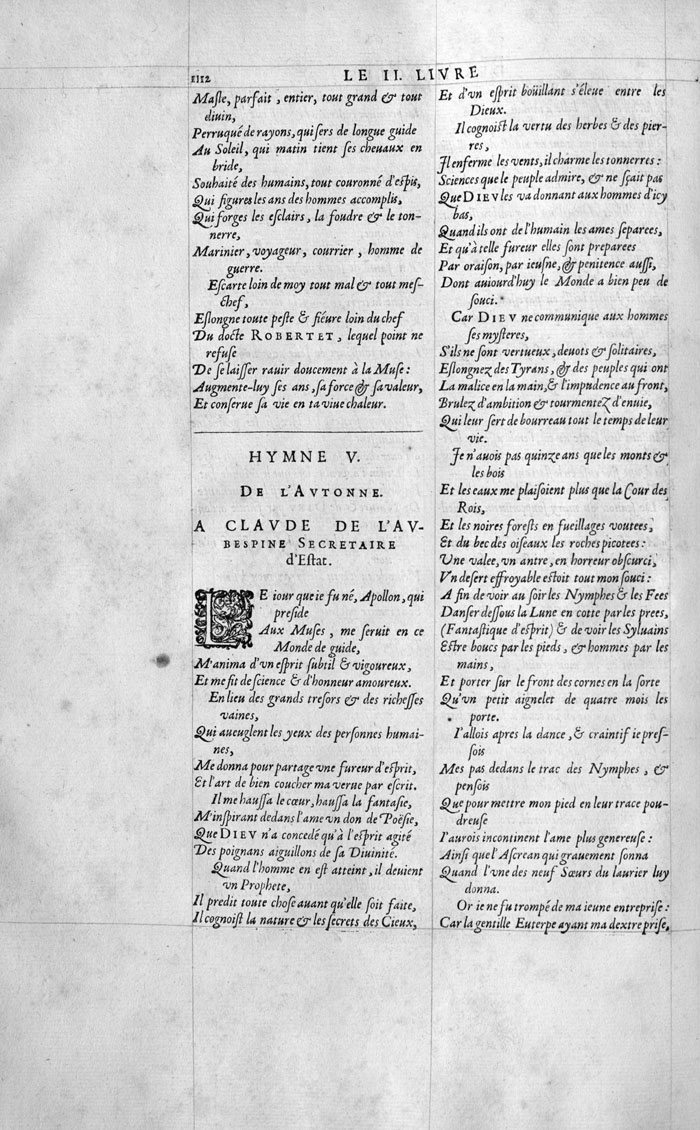 1112
LE II. LIVRE
Masle, parfait, entier, tout grand & tout
diuin,
Perruqué de rayons, qui sers de longue guide
Au Soleil, qui matin tient ses cheuaux en
bride,
Souhaité des humains, tout couronné d'espis,
Qui figures les ans des hommes accomplis,
Qui forges les esclairs, la foudre & le ton-
nerre,
Marinier, voyageur, courrier, homme de
guerre.
Escarte loin de moy tout mal & tout mes-
chef,
Eslongne toute peste & fiéure loin du chef
Du docte ROBERTET, lequel point ne
refuse
De se laisser rauir doucement à la Muse:
Augmente-luy ses ans, sa force & sa valeur,
Et conserue sa vie en ta viue chaleur.
HYMNE V.
DE L'AVTONNE.
A CLAVDE DE L'AV-
BESPINE SECRETAIRE
d'Estat.
LE iour que ie fu né, Apollon, qui
preside
Aux Muses, me seruit en ce
Monde de guide,
M'anima d'vn esprit subtil & vigoureux,
Et me fit de science & d'honneur amoureux.
En lieu des grands tresors & des richesses
vaines,
Qui aueuglent les yeux des personnes humai-
nes,
Me donna pour partage vne fureur d'esprit,
Et l'art de bien coucher ma verue par escrit.
Il me haussa le cœur, haussa la fantasie,
M'inspirant dedans l'ame vn don de Poësie,
Que DIEV n'a concedé qu'à l'esprit agité
Des poignans aiguillons de sa Diuinité.
Quand l'homme en est atteint, il deuient
vn Prophete,
Il predit toute chose auant qu'elle soit faite,
Il cognoist la nature & les secrets des Cieux,
Et d'vn esprit boüillant s'éleue entre les
Dieux.
Il cognoist la vertu des herbes & des pier-
res,
Il enferme les vents, il charme les tonnerres:
Sciences que le peuple admire, & ne sçait pas
Que DIEV les va donnant aux hommes d'icy
bas,
Quand ils ont de l'humain les ames separees,
Et qu'à telle fureur elles sont preparees
Par oraison, par ieusne, & penitence aussi,
Dont auiourd'huy le Monde a bien peu de
souci.
Car DIEV ne communique aux hommes
ses mysteres,
S'ils ne sont vertueux, deuots & solitaires,
Eslongnez des Tyrans, & des peuples qui ont
La malice en la main, & l'impudence au front,
Brulez d'ambition & tourmentez d'enuie,
Qui leur sert de bourreau tout le temps de leur
vie.
Je n'auois pas quinze ans que les monts &
les bois
Et les eaux me plaisoient plus que la Cour des
Rois,
Et les noires forests en fueillages voutees,
Et du bec des oiseaux les roches picotees:
Vne valee, vn antre, en horreur obscurci,
Vn desert effroyable estoit tout mon souci:
A fin de voir au soir les Nymphes & les Fees
Danser dessous la Lune en cotte par les prees,
(Fantastique d'esprit) & de voir les Syluains
Estre boucs par les pieds, & hommes par les
mains,
Et porter sur le front des cornes en la sorte
Qu'vn petit aignelet de quatre mois les
porte.
I'allois apres la dance, & craintif ie pres-
sois
Mes pas dedans le trac des Nymphes, &
pensois
Que pour mettre mon pied en leur trace pou-
dreuse
I'aurois incontinent l'ame plus genereuse:
Ainsi que l'Ascrean qui grauement sonna
Quand l'vne des neuf Sœurs du laurier luy
donna.
Or ie ne fu trompé de ma ieune entreprise:
Car la gentille Euterpe ayant ma dextre prise,